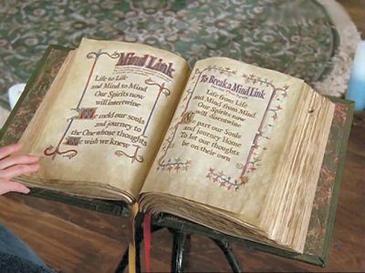 Mind Link
Life to Life
and Mind to Mind
Our Spirits now
will intertwine
We meld our souls
and journey to
the One whose thoughts
We wish we knew
To Break a Mind Link
Life from Life
and Mind from Mind
Our Spirits now
will disentwine
We part our Souls
and journey Home
To let our thoughts
be on their own